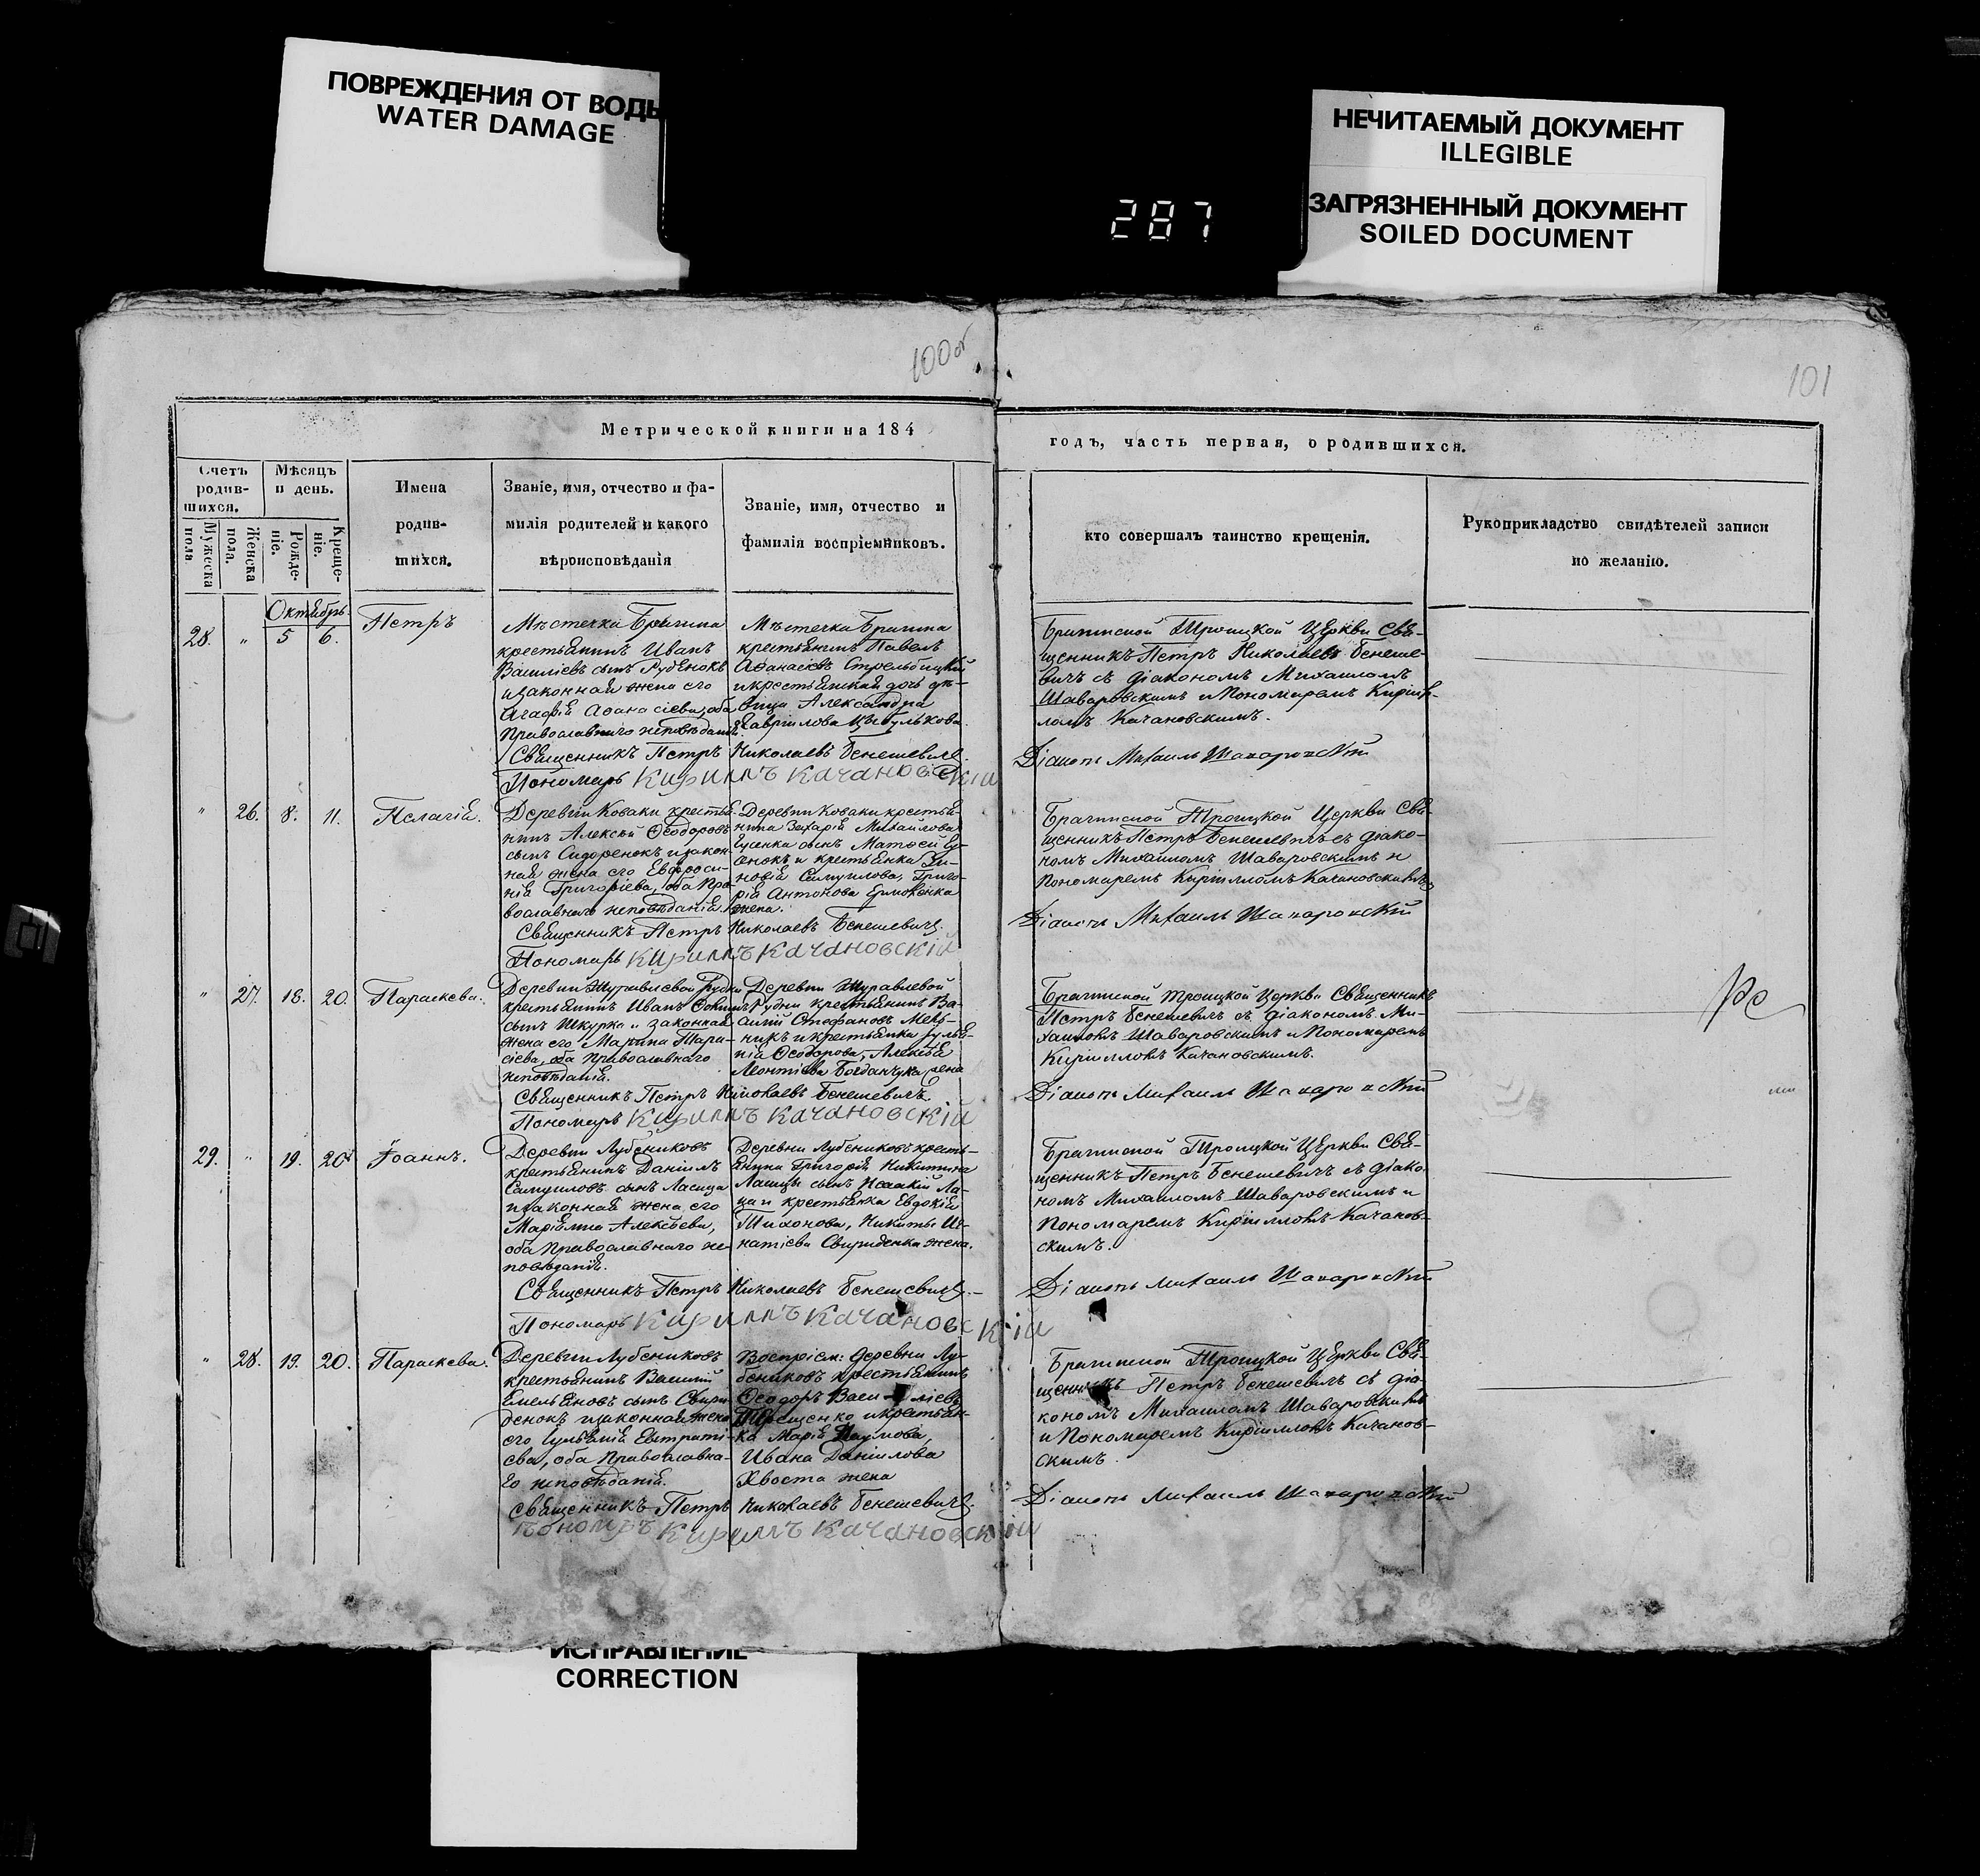 ПОВРЕЖДЕНИЯ ОТ ВОДЫ
WATER DAMAGE
НЕЧИТАЕМЫЙ ДОКУМЕНТ
ILLEGIBLE
ЗАГРЯЗНЕННЫЙ ДОКУМЕНТ
SOILED DOCUMENT
287
100 об
101
Метрической книги на 184
годъ, часть первая, о родившихся.
Счетъ
родив-
шихся.
Мужеска
пола
Женска
пола.
Мѣсяцъ
и день.
Рожде-
ніе.
Креще-
ніе.
Имена
родив-
шихся.
Званіе, имя, отчество и фа-
милія родителей и какого
вѣроисповѣданія
Званіе, имя, отчество и
фамилія воспріемниковъ.
кто совершалъ таинство крещенія.
Рукоприкладство свидѣтелей записи
по желанію.
Октябрь
28. " 5 6. Петръ
Мѣстечка Брагина
крестьянинъ Иванъ
Василіевъ сынъ Руденокъ
и законная жена его
Агафія Аѳанасіева, оба
Православнаго исповѣданія.
Мѣстечка Брагина
крестьянинъ Павелъ
Аѳанасіевъ Стрельбицкій
и крестьянская дочь дѣ-
вица Александра
Гавріилова Цыбулькова.
Священникъ Петръ Николаевъ Бенешевичъ.
Пономарь Кириллъ Качановскій
Брагинской Троицкой Церкви Свя-
щенникъ Петръ Николаевъ Бенеше-
вичъ съ діакономъ Михаиломъ
Шаваровскимъ и Пономаремъ Кирил-
ломъ Качановскимъ.
Діаконъ Михаилъ Шаваровскій
" 26. 8. 11. Пелагія.
Деревни Коваки крестья-
нинъ Алексѣй Ѳеодоровъ
сынъ Сидоренокъ и закон-
ная жена его Евфроси-
нія Григоріева, оба Пра-
вославнаго исповѣданія.
Деревни Коваки крестья-
нина Захарія Михайлова
Гусенка сынъ Матѳей Гу-
сенокъ и крестьянка Зи-
новія Самуилова, Григо-
рія Антонова Ермоленка
жена.
Священникъ Петръ Николаевъ Бенешевичъ.
Пономарь Кириллъ Качановскій
Брагинской Троицкой Церкви Свя-
щенникъ Петръ Бенешевичъ съ діако-
номъ Михаиломъ Шаваровскимъ и
Пономаремъ Кирилломъ Качановскимъ
Діаконъ Михаилъ Шаваровскій
" 27. 18. 20. Параскева.
Деревни Журавлевой Рудни
крестьянинъ Иванъ Ѳоминъ
сынъ Шкурко и законная
жена его Марина Тара-
сіева, оба Православнаго
исповѣданія.
Деревни Журавлевой
Рудни крестьянинъ Ва-
силій Стефановъ Мель-
никъ и крестьянка Гулья-
нія Ѳеодорова, Алексѣя
Леонтіева Богданчука жена
Священникъ Петръ Николаевъ Бенешевичъ.
Пономарь Кириллъ Качановскій
Брагинской Троицкой Церкви Священникъ
Петръ Бенешевичъ съ діакономъ Ми-
хаиломъ Шаваровскимъ и Пономаремъ
Кирилломъ Качановскимъ.
Діаконъ Михаилъ Шаваровскій
29. " 19. 20. Іоаннъ.
Деревни Лубениковъ
крестьянинъ Даніилъ
Самуиловъ сынъ Ласица
и законная жена его
Маріамна Алексѣева,
оба Православнаго ис-
повѣданія.
Деревни Лубениковъ кресть-
янина Григорія Никитина
Ласицы сынъ Исаакій Ла-
ца и крестьянка Евдокія
Тихонова, Никиты Иг-
натіева Свириденка жена.
Священникъ Петръ Николаевъ Бенешевичъ.
Пономарь Кириллъ Качановскій
Брагинской Троицкой Церкви Свя-
щенникъ Петръ Бенешевичъ съ діако-
номъ Михаиломъ Шаваровскимъ и
Пономаремъ Кирилломъ Качанов-
скимъ.
Діаконъ Михаилъ Шаваровскій
" 28. 19. 20. Параскева.
Деревни Лубениковъ
крестьянинъ Василій
Емельяновъ сынъ Свири-
денокъ и законная жена
его Гульянія Евстраті-
ева, оба Православна-
го исповѣданія.
Воспріем: деревни Лу-
бениковъ крестьянинъ
Ѳеодоръ Василіевъ
Терещенко и крестьян-
ка Марія Наумова,
Ивана Даніилова
Хвоста жена
Священникъ Петръ Николаевъ Бенешевичъ.
Пономаръ Кириллъ Качановскій
Брагинской Троицкой Церкви Свя-
щенникъ Петръ Бенешевичъ съ діа-
кономъ Михаиломъ Шаваровскимъ
и Пономаремъ Кирилломъ Качанов-
скимъ.
Діаконъ Михаилъ Шаваровскій
ИСПРАВЛЕНИЕ
CORRECTION